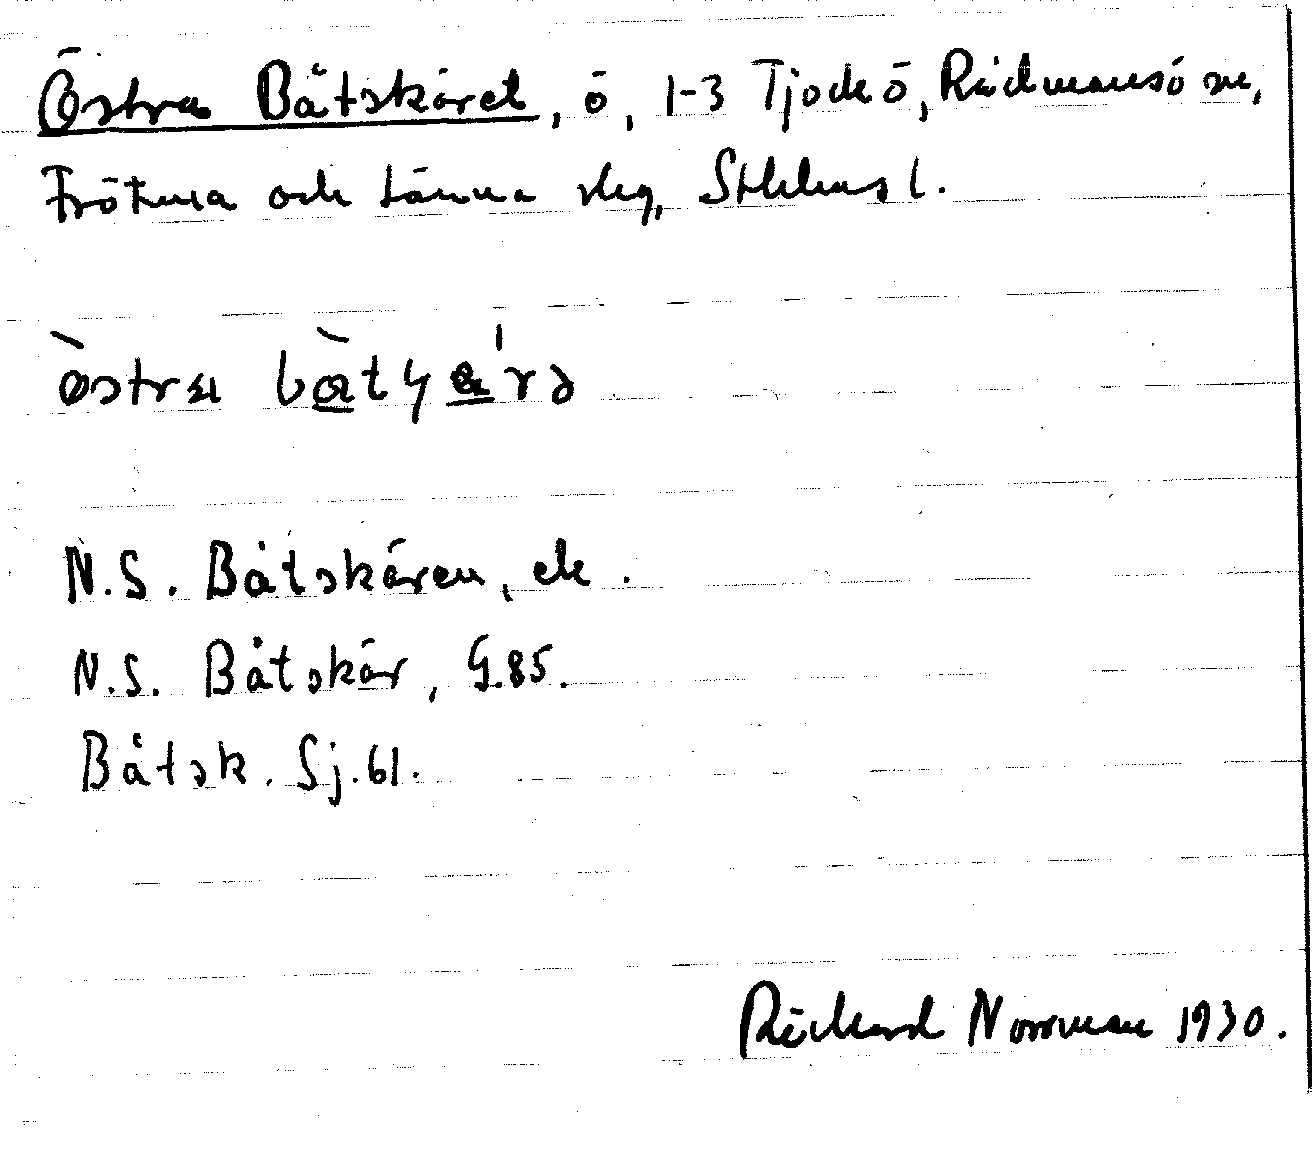 Östra Båtskäret, ö, 1-3 Tjockö, Rådmansö sn,
Frötuna och Länna slg, Sthlms l.
N.S. Båtskären, ek.
N.S. Båtskär, G.85.
Båtsk. Sj.61.
Rickard Norrman 1930.